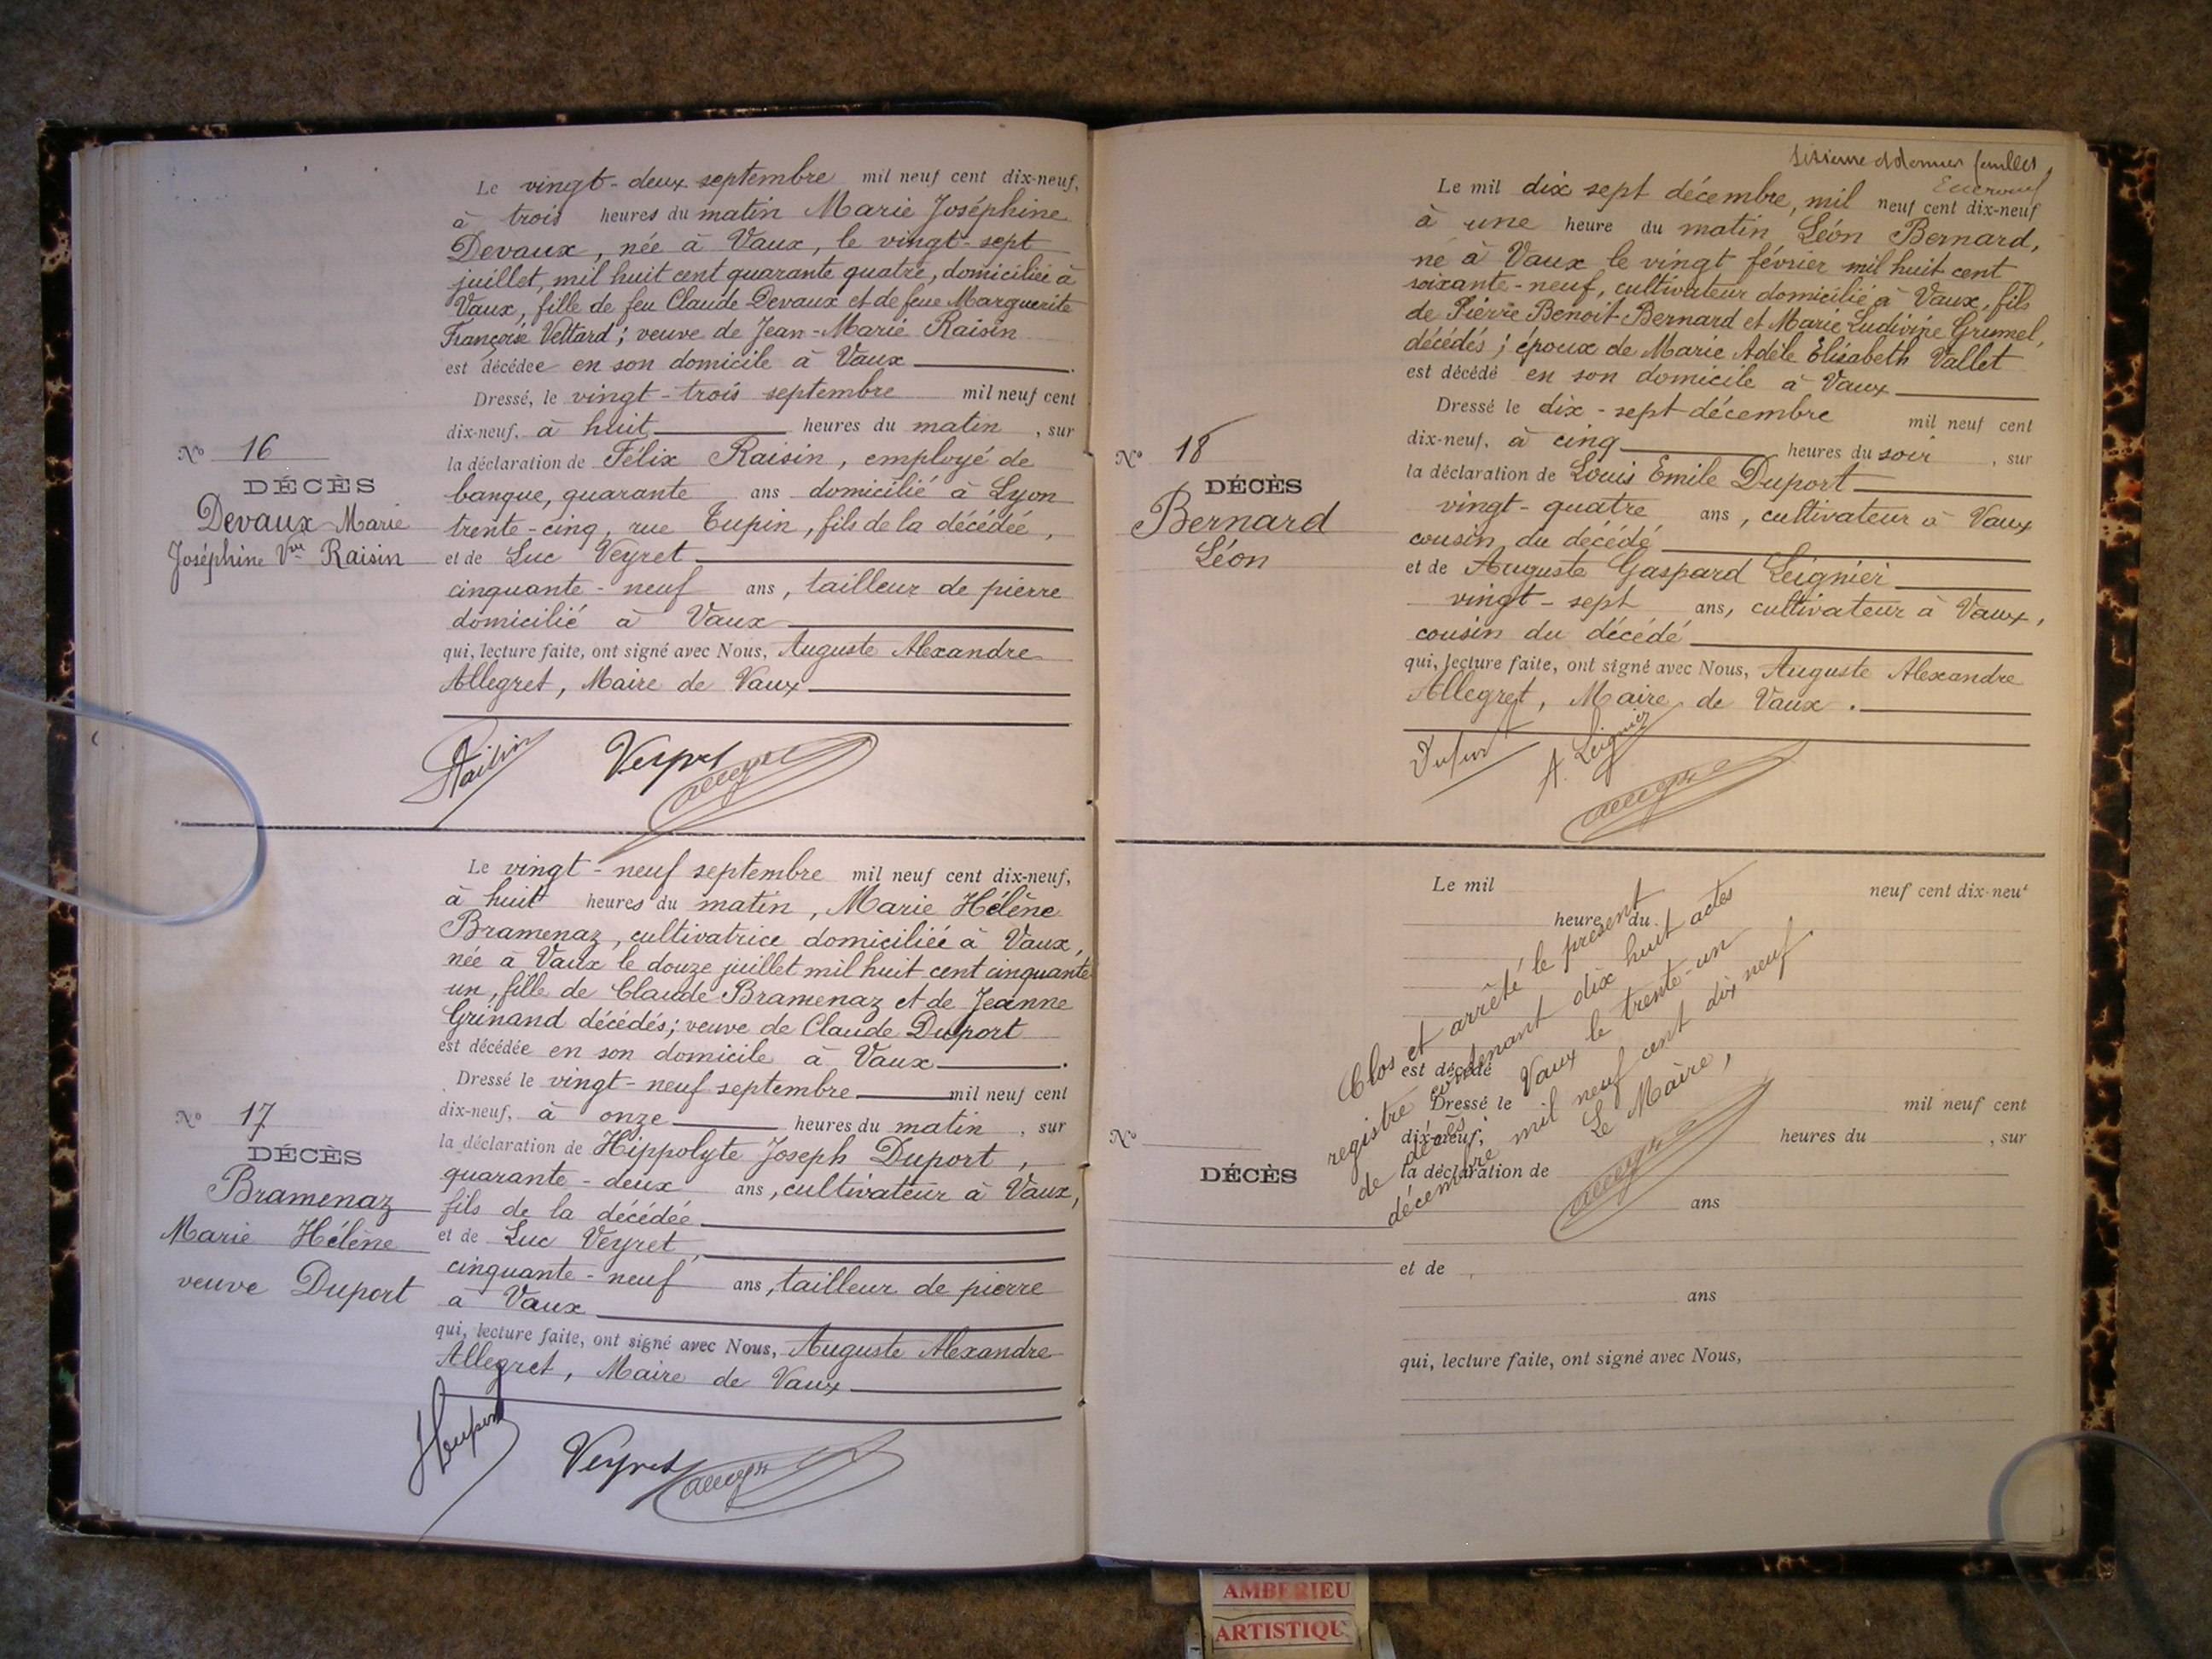 Le vingt-deux septembre mil neuf cent dix-neuf,
à trois heures du matin Marie Joséphine
Devaux, née à Vaux, le vingt-sept
juillet, mil huit cent quarante quatre, domiciliée à
Vaux, fille de feu Claude Devaux et de feue Marguerite
Françoise Vettard; veuve de Jean-Marie Raisin
est décédée en son domicile à Vaux
Dressé, le vingt-trois septembre mil neuf cent
dix-neuf, à huit heures du matin, sur
No 16
la déclaration de Félix Raisin, employé de
DÉCÈS
banque, quarante ans domicilié à Lyon
Devaux Marie
trente-cinq, rue Tupin, fils de la décédée,
Joséphine Vve Raisin
et de Luc Veyret
cinquante-neuf ans, tailleur de pierre
domicilié à Vaux
qui, lecture faite, ont signé avec Nous, Auguste Alexandre
Allegret, Maire de Vaux
Raisin Veyret Allegret
Le vingt-neuf septembre mil neuf cent dix-neuf,
à huit heures du matin, Marie Hélène
Bramenaz, cultivatrice domiciliée à Vaux,
née à Vaux le douze juillet mil huit cent cinquante
un, fille de Claude Bramenaz et de Jeanne
Grinand décédés; veuve de Claude Duport
est décédée en son domicile à Vaux.
Dressé le vingt-neuf septembre mil neuf cent
No 17
dix-neuf, à onze heures du matin, sur
DÉCÈS
la déclaration de Hippolyte Joseph Duport,
Bramenaz
quarante-deux ans, cultivateur à Vaux,
fils de la décédée
Marie Hélène
et de Luc Veyret,
veuve Duport
cinquante-neuf ans, tailleur de pierre
à Vaux
qui, lecture faite, ont signé avec Nous, Auguste Alexandre
Allegret, Maire de Vaux
HDuport Veyret Allegret
feuillet
Le mil dix sept décembre, mil neuf cent dix-neuf
à une heure du matin Léon Bernard,
né à Vaux le vingt février mil huit cent
soixante-neuf, cultivateur domicilié à Vaux, fils
de Pierre Benoit Bernard et Marie Ludivine Grumel,
décédés; époux de Marie Adèle Élisabeth Vallet
est décédé en son domicile à Vaux
Dressé le dix-sept décembre mil neuf cent
dix-neuf, à cinq heures du soir, sur
No 18
la déclaration de Louis Emile Duport
DÉCÈS
vingt-quatre ans, cultivateur à Vaux
Bernard
cousin du décédé
Léon
et de Auguste Gaspard Leignier
vingt-sept ans, cultivateur à Vaux,
cousin du décédé
qui, lecture faite, ont signé avec Nous, Auguste Alexandre
Allegret, Maire de Vaux.
Duport A. Leignier Allegret
Le mil neuf cent dix-neuf
heure du
est décédé
Dressé le mil neuf cent
dix-neuf, heures du , sur
No
DÉCÈS
la déclaration de
ans
et de
ans
qui, lecture faite, ont signé avec Nous,
Clos et arrêté le présent
registre contenant dix huit actes
de décès Vaux le trente-un
décembre mil neuf cent dix neuf
Le Maire,
Allegret
AMBERIEU
ARTISTIQU